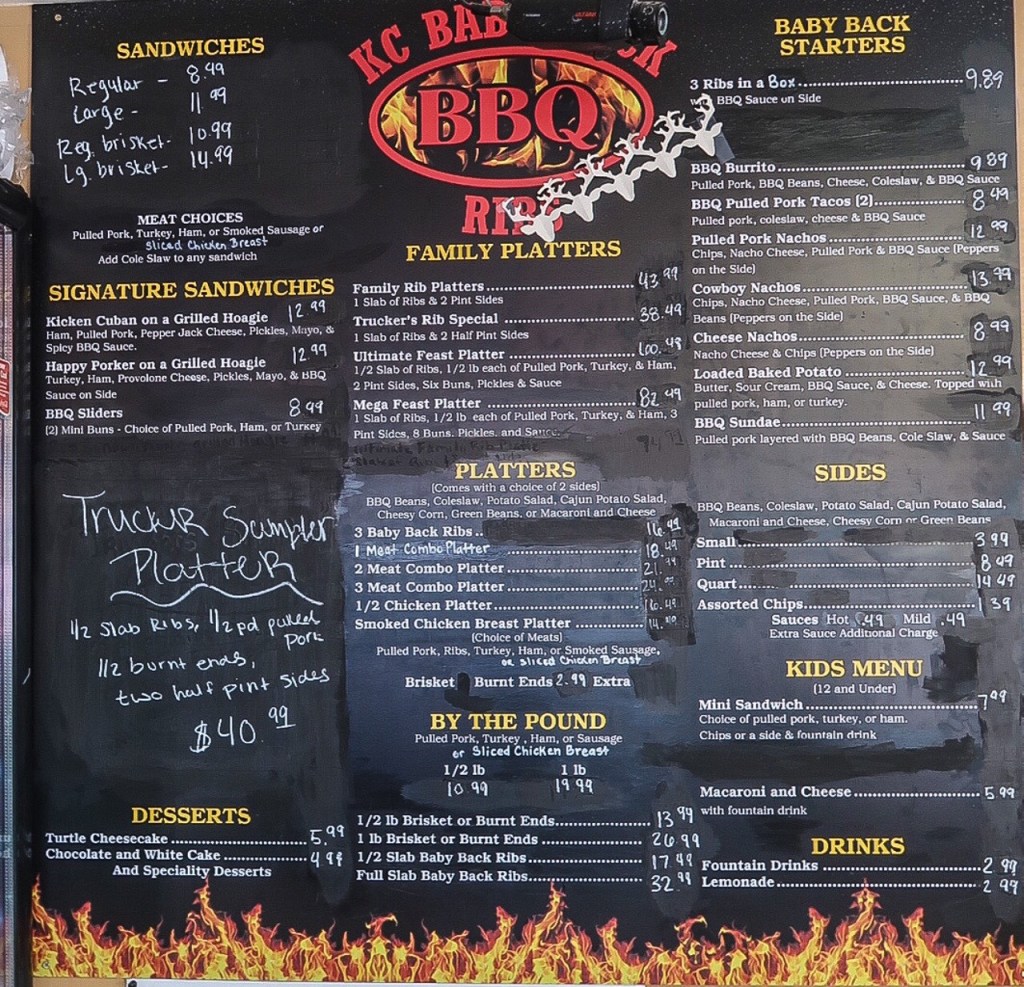 SANDWICHES
Regular - 8.49
Large - 11.99
Reg. brisket- 10.99
Lg. brisket- 14.99
MEAT CHOICES
Pulled Pork, Turkey, Ham, or Smoked Sausage or
Sliced Chicken Breast
Add Cole Slaw to any sandwich
SIGNATURE SANDWICHES
Kicken Cuban on a Grilled Hoagie 12.99
Ham, Pulled Pork, Pepper Jack Cheese, Pickles, Mayo, &
Spicy BBQ Sauce.
Happy Porker on a Grilled Hoagie 12.99
Turkey, Ham, Provolone Cheese, Pickles, Mayo, & BBQ
Sauce on Side
BBQ Sliders 8.99
(2) Mini Buns - Choice of Pulled Pork, Ham, or Turkey
Truckur Sampler
Platter
1/2 slab Ribs, 1/2 pd pulled
pork
1/2 burnt ends,
two half pint sides
$40.99
DESSERTS
Turtle Cheesecake 5.99
Chocolate and White Cake
And Speciality Desserts
KC
BBQ
FAMILY PLATTERS
Family Rib Platters 43.99
1 Slab of Ribs & 2 Pint Sides
Trucker's Rib Special 38.49
1 Slab of Ribs & 2 Half Pint Sides
Ultimate Feast Platter
1/2 Slab of Ribs, 1/2 lb each of Pulled Pork, Turkey, & Ham,
2 Pint Sides, Six Buns, Pickles & Sauce
Mega Feast Platter 82.49
1 Slab of Ribs, 1/2 lb each of Pulled Pork, Turkey, & Ham, 3
Pint Sides, 8 Buns, Pickles, and Sauce
PLATTERS
(Comes with a choice of 2 sides)
BBQ Beans, Coleslaw, Potato Salad, Cajun Potato Salad,
Cheesy Corn, Green Beans, or Macaroni and Cheese
3 Baby Back Ribs 16.99
1 Meat Combo Platter 18.49
2 Meat Combo Platter 21.99
3 Meat Combo Platter
1/2 Chicken Platter 16.49
Smoked Chicken Breast Platter
(Choice of Meats)
Pulled Pork, Ribs, Turkey, Ham, or Smoked Sausage,
or sliced Chicken Breast
Brisket Burnt Ends 2.99 Extra
BY THE POUND
Pulled Pork, Turkey, Ham, or Sausage
or Sliced Chicken Breast
1/2 lb 1 lb
10.99 19.99
1/2 lb Brisket or Burnt Ends 13.99
1 lb Brisket or Burnt Ends 26.99
1/2 Slab Baby Back Ribs 17.49
Full Slab Baby Back Ribs 32.99
BABY BACK
STARTERS
3 Ribs in a Box 9.89
BBQ Sauce on Side
BBQ Burrito 9.89
Pulled Pork, BBQ Beans, Cheese, Coleslaw, & BBQ Sauce
BBQ Pulled Pork Tacos (2) 8.49
Pulled pork, coleslaw, cheese & BBQ Sauce
Pulled Pork Nachos 12.99
Chips, Nacho Cheese, Pulled Pork & BBQ Sauce (Peppers
on the Side)
Cowboy Nachos 13.99
Chips, Nacho Cheese, Pulled Pork, BBQ Sauce, & BBQ
Beans (Peppers on the Side)
Cheese Nachos 8.99
Nacho Cheese & Chips (Peppers on the Side)
Loaded Baked Potato 12.99
Butter, Sour Cream, BBQ Sauce, & Cheese. Topped with
pulled pork, ham, or turkey.
BBQ Sundae 11.99
Pulled pork layered with BBQ Beans, Cole Slaw, & Sauce
SIDES
BBQ Beans, Coleslaw, Potato Salad, Cajun Potato Salad,
Macaroni and Cheese, Cheesy Corn or Green Beans
Small 3.99
Pint 8.49
Quart 14.49
Assorted Chips 1.39
Sauces Hot .49 Mild .49
Extra Sauce Additional Charge
KIDS MENU
(12 and Under)
Mini Sandwich 7.99
Choice of pulled pork, turkey, or ham.
Chips or a side & fountain drink
Macaroni and Cheese 5.99
with fountain drink
DRINKS
Fountain Drinks 2.99
Lemonade 2.99